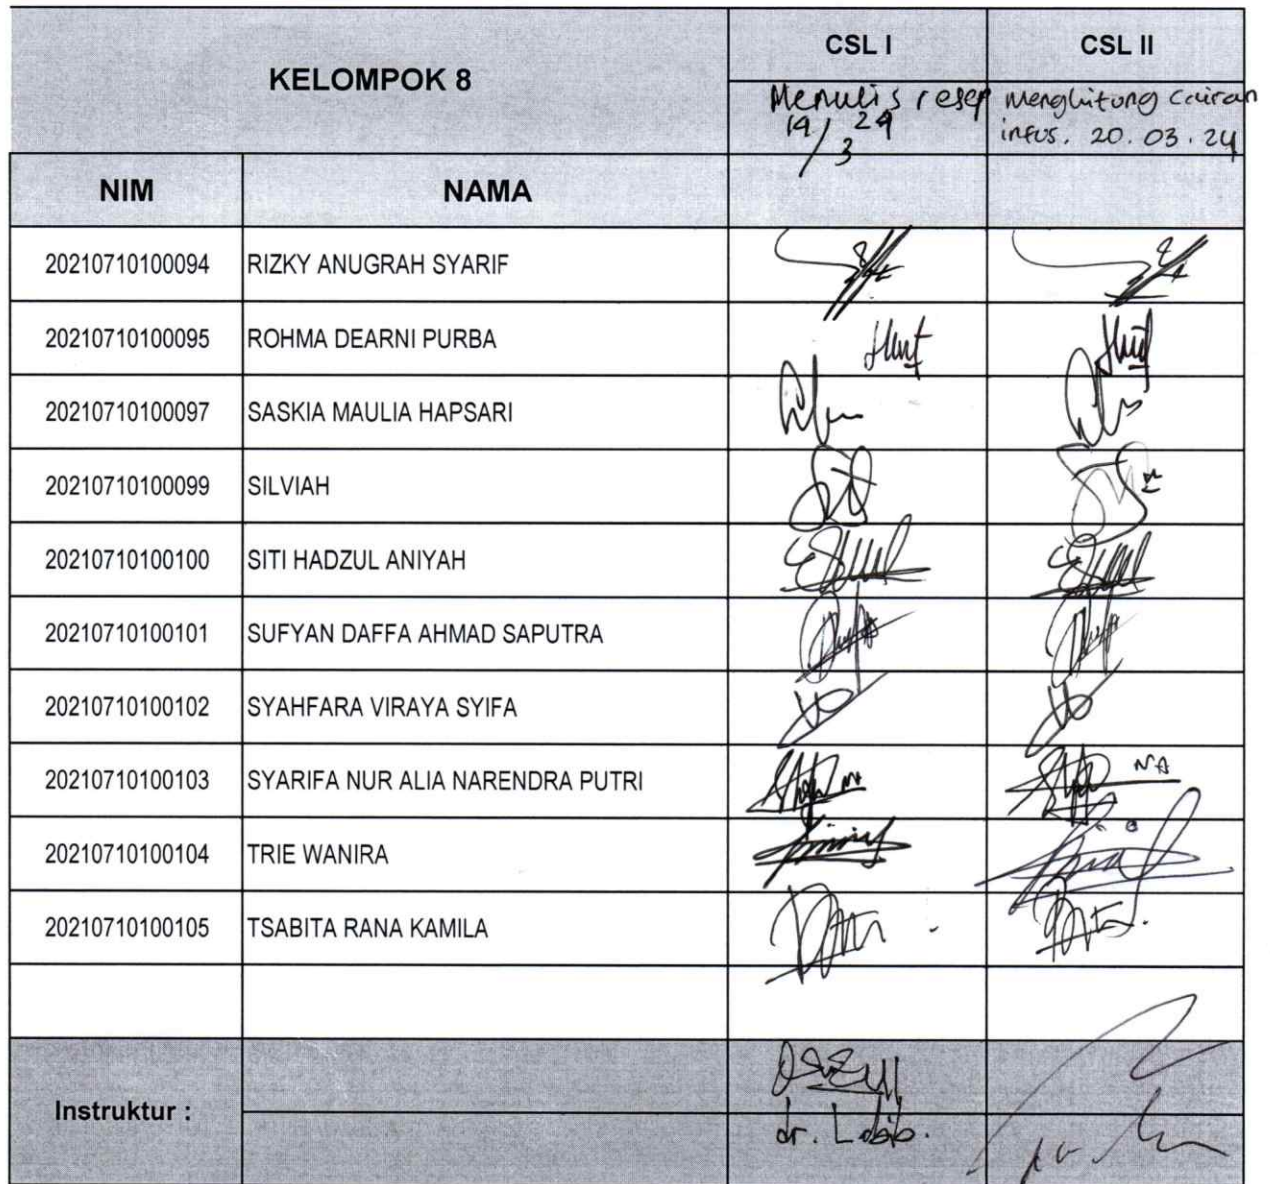 KELOMPOK 8
CSL I
CSL II
Menulis resep
14/3 24
Menghitung Cairan
infus. 20.03.24
NIM
NAMA
20210710100094 RIZKY ANUGRAH SYARIF
20210710100095 ROHMA DEARNI PURBA
20210710100097 SASKIA MAULIA HAPSARI
20210710100099 SILVIAH
20210710100100 SITI HADZUL ANIYAH
20210710100101 SUFYAN DAFFA AHMAD SAPUTRA
20210710100102 SYAHFARA VIRAYA SYIFA
20210710100103 SYARIFA NUR ALIA NARENDRA PUTRI
20210710100104 TRIE WANIRA
20210710100105 TSABITA RANA KAMILA
Instruktur :
dr. Labib.